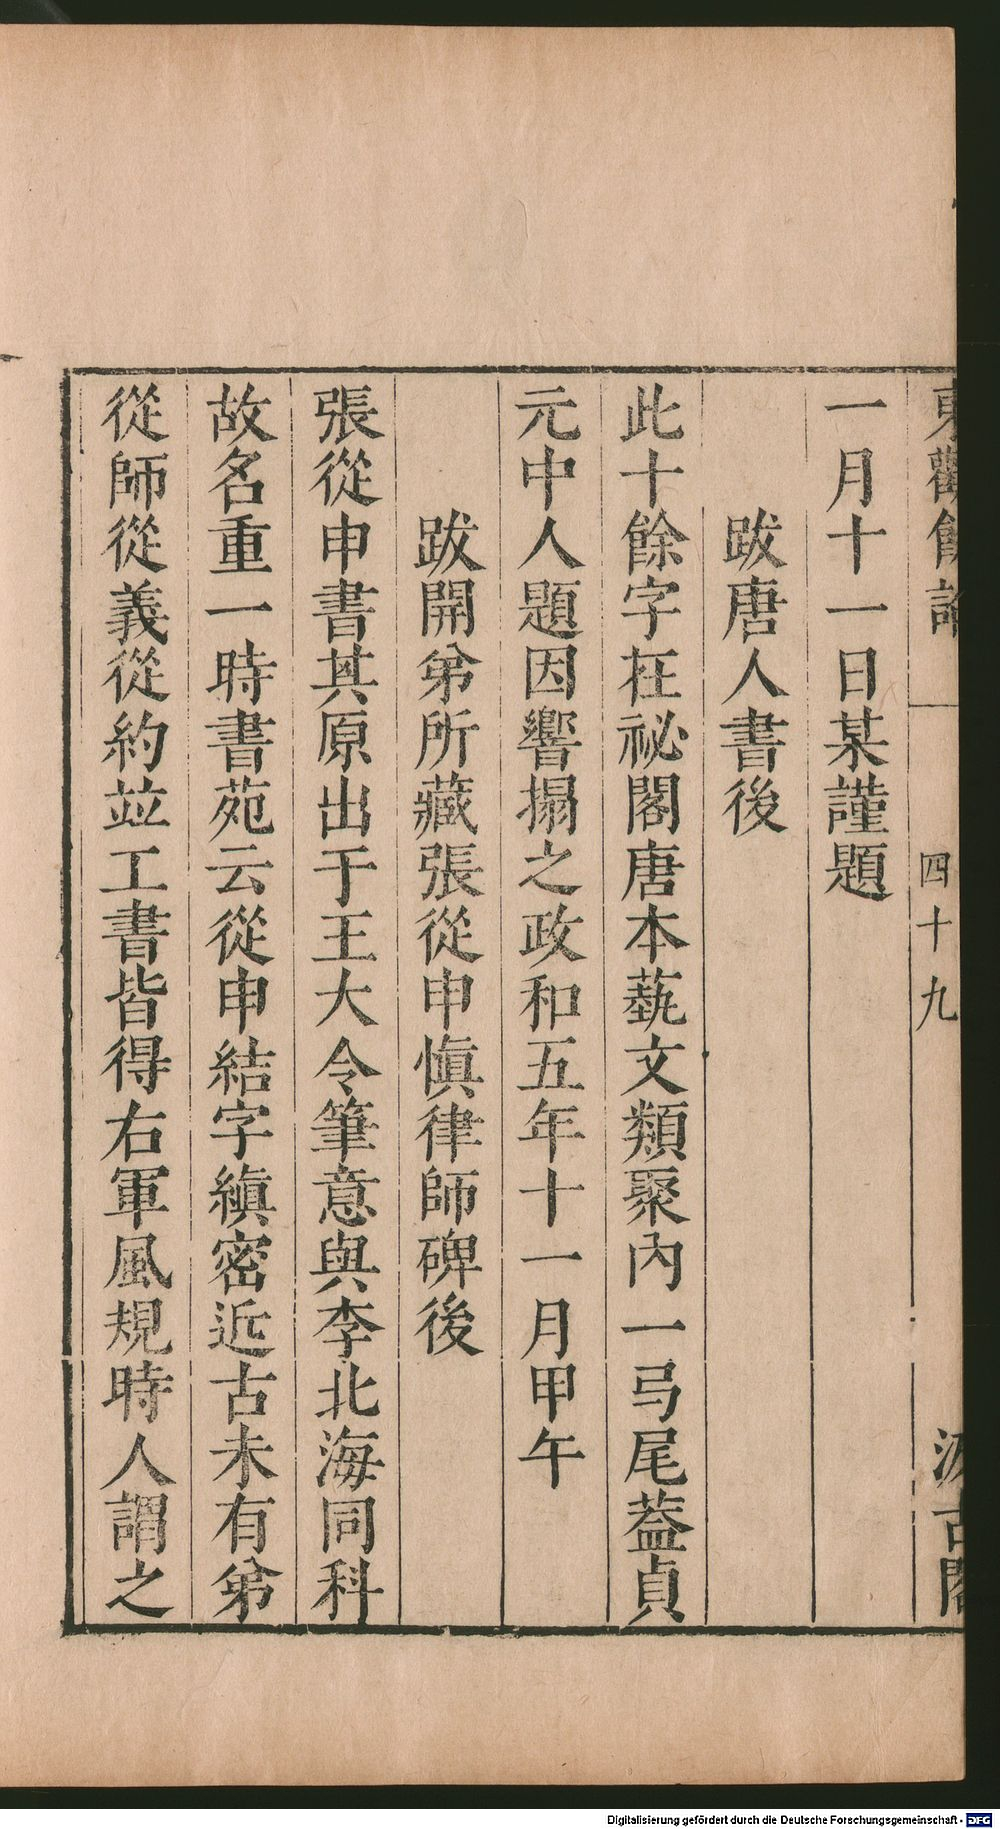 東觀餘論
四十九
汲古閣
一月十一日某謹題
跋唐人書後
此十餘字在祕閣唐本蓺文類聚內一弓尾蓋貞
元中人題因響搨之政和五年十一月甲午
跋開弟所藏張從申愼律師碑後
張從申書其原出于王大令筆意與李北海同科
故名重一時書苑云從申結字縝密近古未有弟
從師從義從約竝工書皆得右軍風規時人謂之
Digitalisierung gefördert durch die Deutsche Forschungsgemeinschaft - DFG